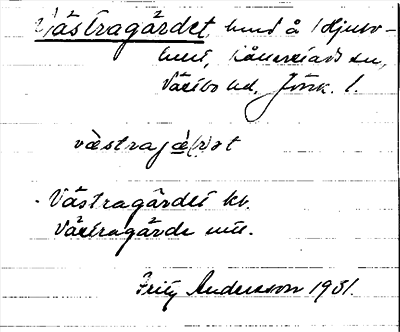 Västragärdet, hmd å Hjuls-
hult, Kånnestads sn,
Västbo hd, Jönk. l.
västrajæ(r)ət
Västragärdet kv.
Västragärde mtl.
Fritz Andersson 1931.